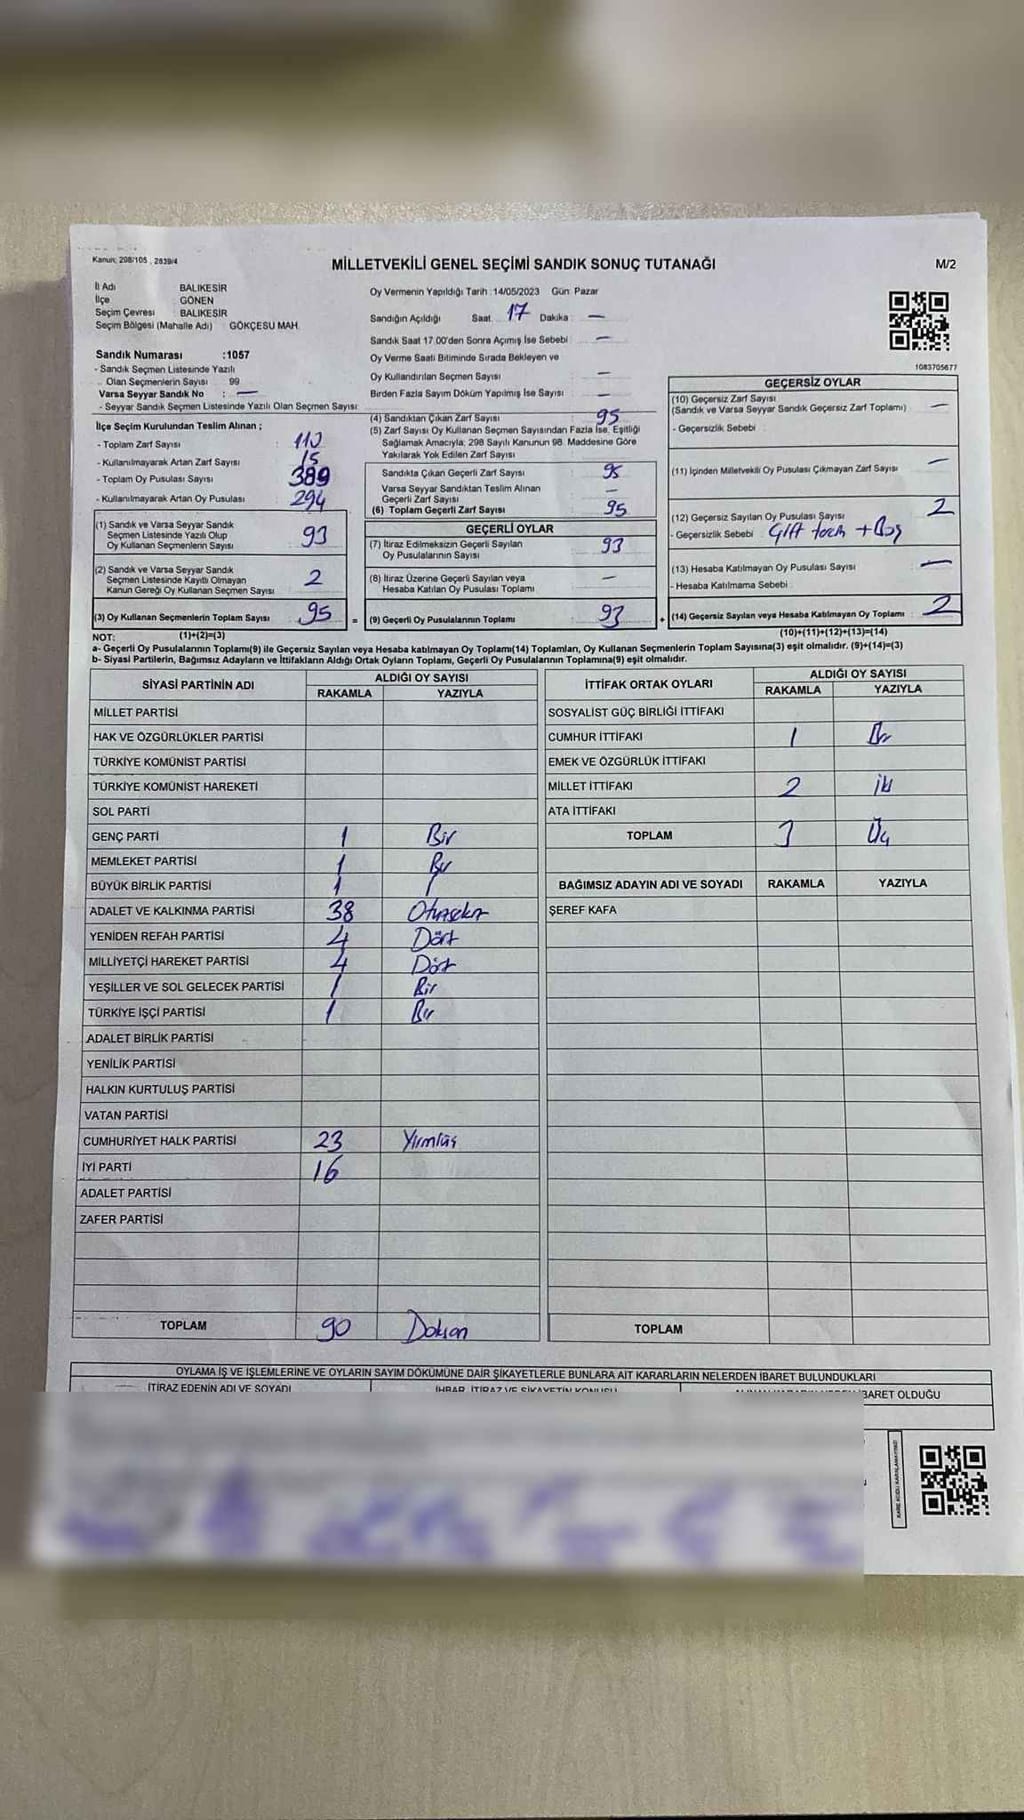 Kanun: 298/105 , 2839/4
MİLLETVEKİLİ GENEL SEÇİMİ SANDIK SONUÇ TUTANAĞI
M/2
İl Adı BALIKESİR
İlçe GÖNEN
Seçim Çevresi BALIKESİR
Seçim Bölgesi (Mahalle Adı) GÖKÇESU MAH.
Sandık Numarası :1057
- Sandık Seçmen Listesinde Yazılı
Olan Seçmenlerin Sayısı 99
Varsa Seyyar Sandık No : —
- Seyyar Sandık Seçmen Listesinde Yazılı Olan Seçmen Sayısı:
İlçe Seçim Kurulundan Teslim Alınan ;
- Toplam Zarf Sayısı : 110
- Kullanılmayarak Artan Zarf Sayısı : 15
- Toplam Oy Pusulası Sayısı : 389
- Kullanılmayarak Artan Oy Pusulası : 294
(1) Sandık ve Varsa Seyyar Sandık
Seçmen Listesinde Yazılı Olup
Oy Kullanan Seçmenlerin Sayısı : 93
(2) Sandık ve Varsa Seyyar Sandık
Seçmen Listesinde Kayıtlı Olmayan
Kanun Gereği Oy Kullanan Seçmen Sayısı : 2
(3) Oy Kullanan Seçmenlerin Toplam Sayısı : 95 =
Oy Vermenin Yapıldığı Tarih :14/05/2023 Gün: Pazar
Sandığın Açıldığı Saat: 17 Dakika : —
Sandık Saat 17.00'den Sonra Açımış İse Sebebi : —
Oy Verme Saati Bitiminde Sırada Bekleyen ve
Oy Kullandırılan Seçmen Sayısı : —
Birden Fazla Sayım Döküm Yapılmış İse Sayısı : —
(4) Sandıktan Çıkan Zarf Sayısı : 95
(5) Zarf Sayısı Oy Kullanan Seçmen Sayısından Fazla İse, Eşitliği
Sağlamak Amacıyla, 298 Sayılı Kanunun 98. Maddesine Göre
Yakılarak Yok Edilen Zarf Sayısı
Sandıkta Çıkan Geçerli Zarf Sayısı : 95
Varsa Seyyar Sandıktan Teslim Alınan
Geçerli Zarf Sayısı : —
(6) Toplam Geçerli Zarf Sayısı : 95
GEÇERLİ OYLAR
(7) İtiraz Edilmeksizin Geçerli Sayılan
Oy Pusulalarının Sayısı : 93
(8) İtiraz Üzerine Geçerli Sayılan veya
Hesaba Katılan Oy Pusulası Toplamı : —
(9) Geçerli Oy Pusulalarının Toplamı : 93 +
1083705677
GEÇERSİZ OYLAR
(10) Geçersiz Zarf Sayısı
(Sandık ve Varsa Seyyar Sandık Geçersiz Zarf Toplamı) : —
- Geçersizlik Sebebi :
(11) İçinden Milletvekili Oy Pusulası Çıkmayan Zarf Sayısı : —
(12) Geçersiz Sayılan Oy Pusulası Sayısı : 2
- Geçersizlik Sebebi : Çift tercih + Boş
(13) Hesaba Katılmayan Oy Pusulası Sayısı : —
- Hesaba Katılmama Sebebi :
(14) Geçersiz Sayılan veya Hesaba Katılmayan Oy Toplamı : 2
NOT: (1)+(2)=(3)
(10)+(11)+(12)+(13)=(14)
a- Geçerli Oy Pusulalarının Toplamı(9) ile Geçersiz Sayılan veya Hesaba katılmayan Oy Toplamı(14) Toplamları, Oy Kullanan Seçmenlerin Toplam Sayısına(3) eşit olmalıdır. (9)+(14)=(3)
b- Siyasi Partilerin, Bağımsız Adayların ve İttifakların Aldığı Ortak Oyların Toplamı, Geçerli Oy Pusulalarının Toplamına(9) eşit olmalıdır.
SİYASİ PARTİNİN ADI ALDIĞI OY SAYISI
RAKAMLA YAZIYLA
MİLLET PARTİSİ
HAK VE ÖZGÜRLÜKLER PARTİSİ
TÜRKİYE KOMÜNİST PARTİSİ
TÜRKİYE KOMÜNİST HAREKETİ
SOL PARTİ
GENÇ PARTİ 1 Bir
MEMLEKET PARTİSİ 1 Bir
BÜYÜK BİRLİK PARTİSİ 1
ADALET VE KALKINMA PARTİSİ 38 Otuzsekiz
YENİDEN REFAH PARTİSİ 4 Dört
MİLLİYETÇİ HAREKET PARTİSİ 4 Dört
YEŞİLLER VE SOL GELECEK PARTİSİ 1 Bir
TÜRKİYE İŞÇİ PARTİSİ 1 Bir
ADALET BİRLİK PARTİSİ
YENİLİK PARTİSİ
HALKIN KURTULUŞ PARTİSİ
VATAN PARTİSİ
CUMHURİYET HALK PARTİSİ 23 Yirmiüç
İYİ PARTİ 16
ADALET PARTİSİ
ZAFER PARTİSİ
TOPLAM 90 Doksan
İTTİFAK ORTAK OYLARI ALDIĞI OY SAYISI
RAKAMLA YAZIYLA
SOSYALİST GÜÇ BİRLİĞİ İTTİFAKI
CUMHUR İTTİFAKI 1 Bir
EMEK VE ÖZGÜRLÜK İTTİFAKI
MİLLET İTTİFAKI 2 İki
ATA İTTİFAKI
TOPLAM 3 Üç
BAĞIMSIZ ADAYIN ADI VE SOYADI RAKAMLA YAZIYLA
ŞEREF KAFA
TOPLAM
OYLAMA İŞ VE İŞLEMLERİNE VE OYLARIN SAYIM DÖKÜMÜNE DAİR ŞİKAYETLERLE BUNLARA AİT KARARLARIN NELERDEN İBARET BULUNDUKLARI
İTİRAZ EDENİN ADI VE SOYADI İHBAR, İTİRAZ VE ŞİKAYETİN KONUSU BARET OLDUĞU